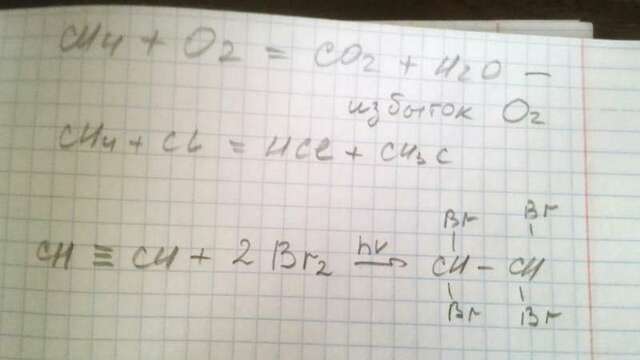 CH4 + O2 = CO2 + H2O —
избыток O2
CH4 + CL = HCl + CH3 C
Br Br
CH ≡ CH + 2 Br2 hν → CH - CH
Br Br